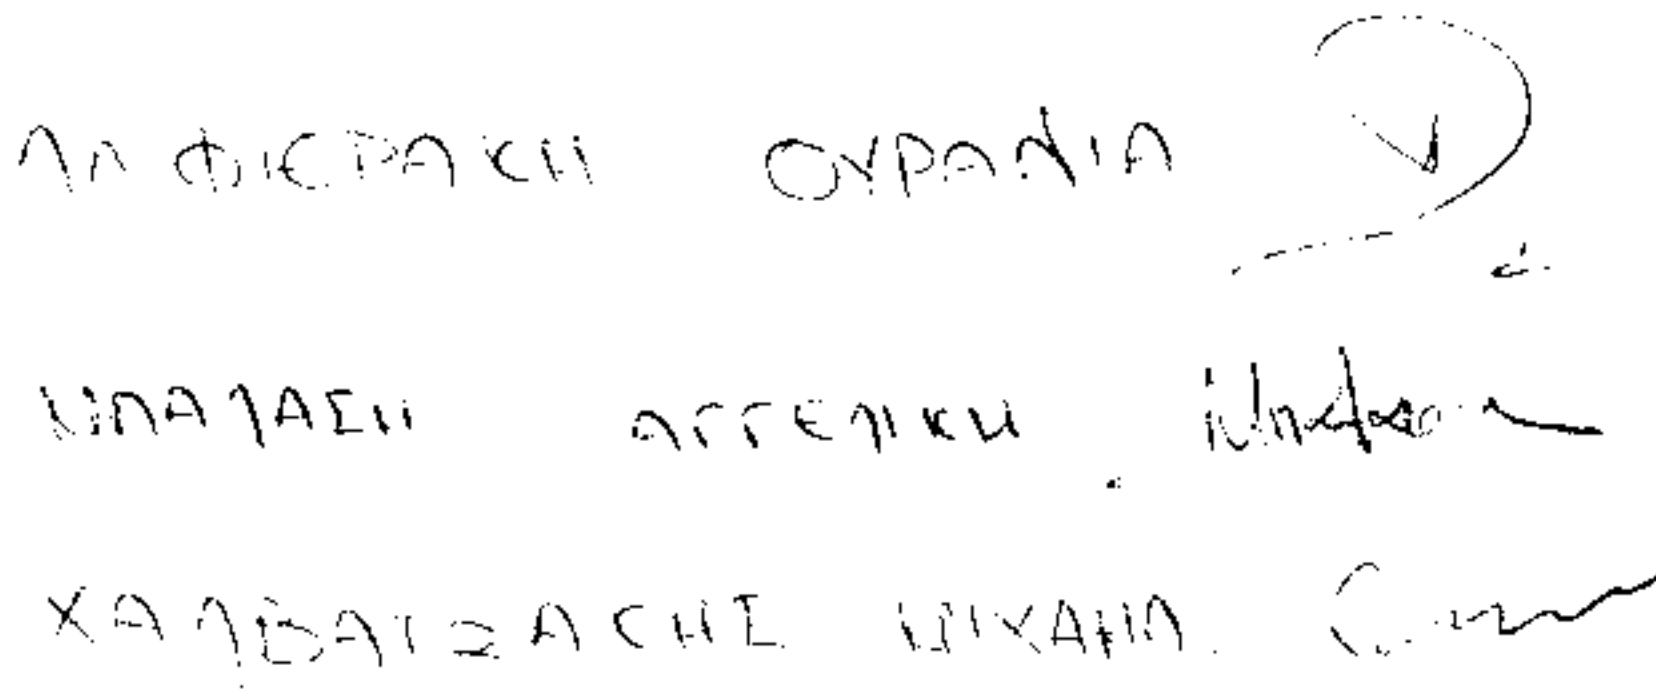 ΛΑΦΙΕΡΑΚΗ ΟΥΡΑΝΙΑ
ΜΠΑΛΑΣΗ ΑΓΓΕΛΙΚΗ
ΧΑΛΒΑΤΖΑΚΗΣ ΜΙΧΑΗΛ